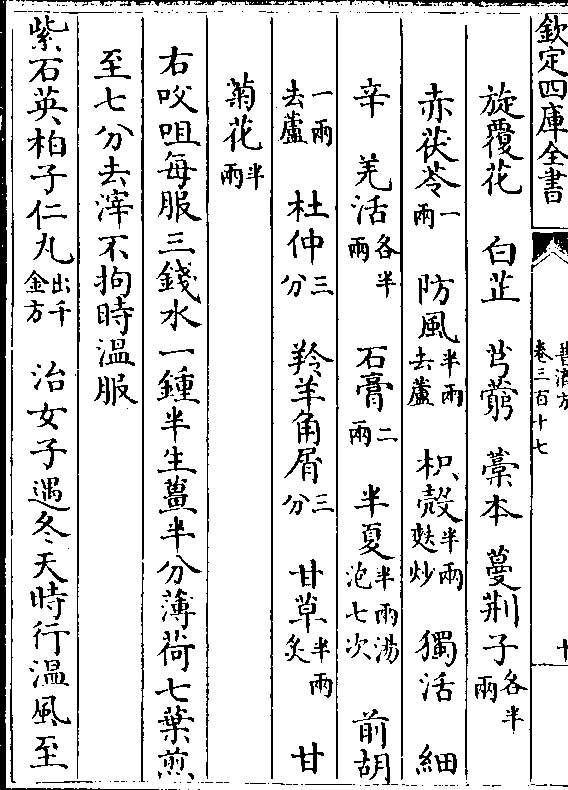 欽定四庫全書
普濟方
卷三百十七
十
旋覆花 白芷 芎藭 藁本 蔓荆子各半兩
赤茯苓一兩 防風半兩去蘆 枳殻半兩麩炒 獨活 細
辛 羌活各半兩 石膏二兩 半夏半兩湯泡七次 前胡
一兩去蘆 杜仲三分 羚羊角屑三分 甘草半兩炙 甘
菊花半兩
右㕮咀每服三錢水一鍾半生薑半分薄荷七葉煎
至七分去滓不拘時温服
紫石英柏子仁丸出千金方 治女子遇冬天時行温風至